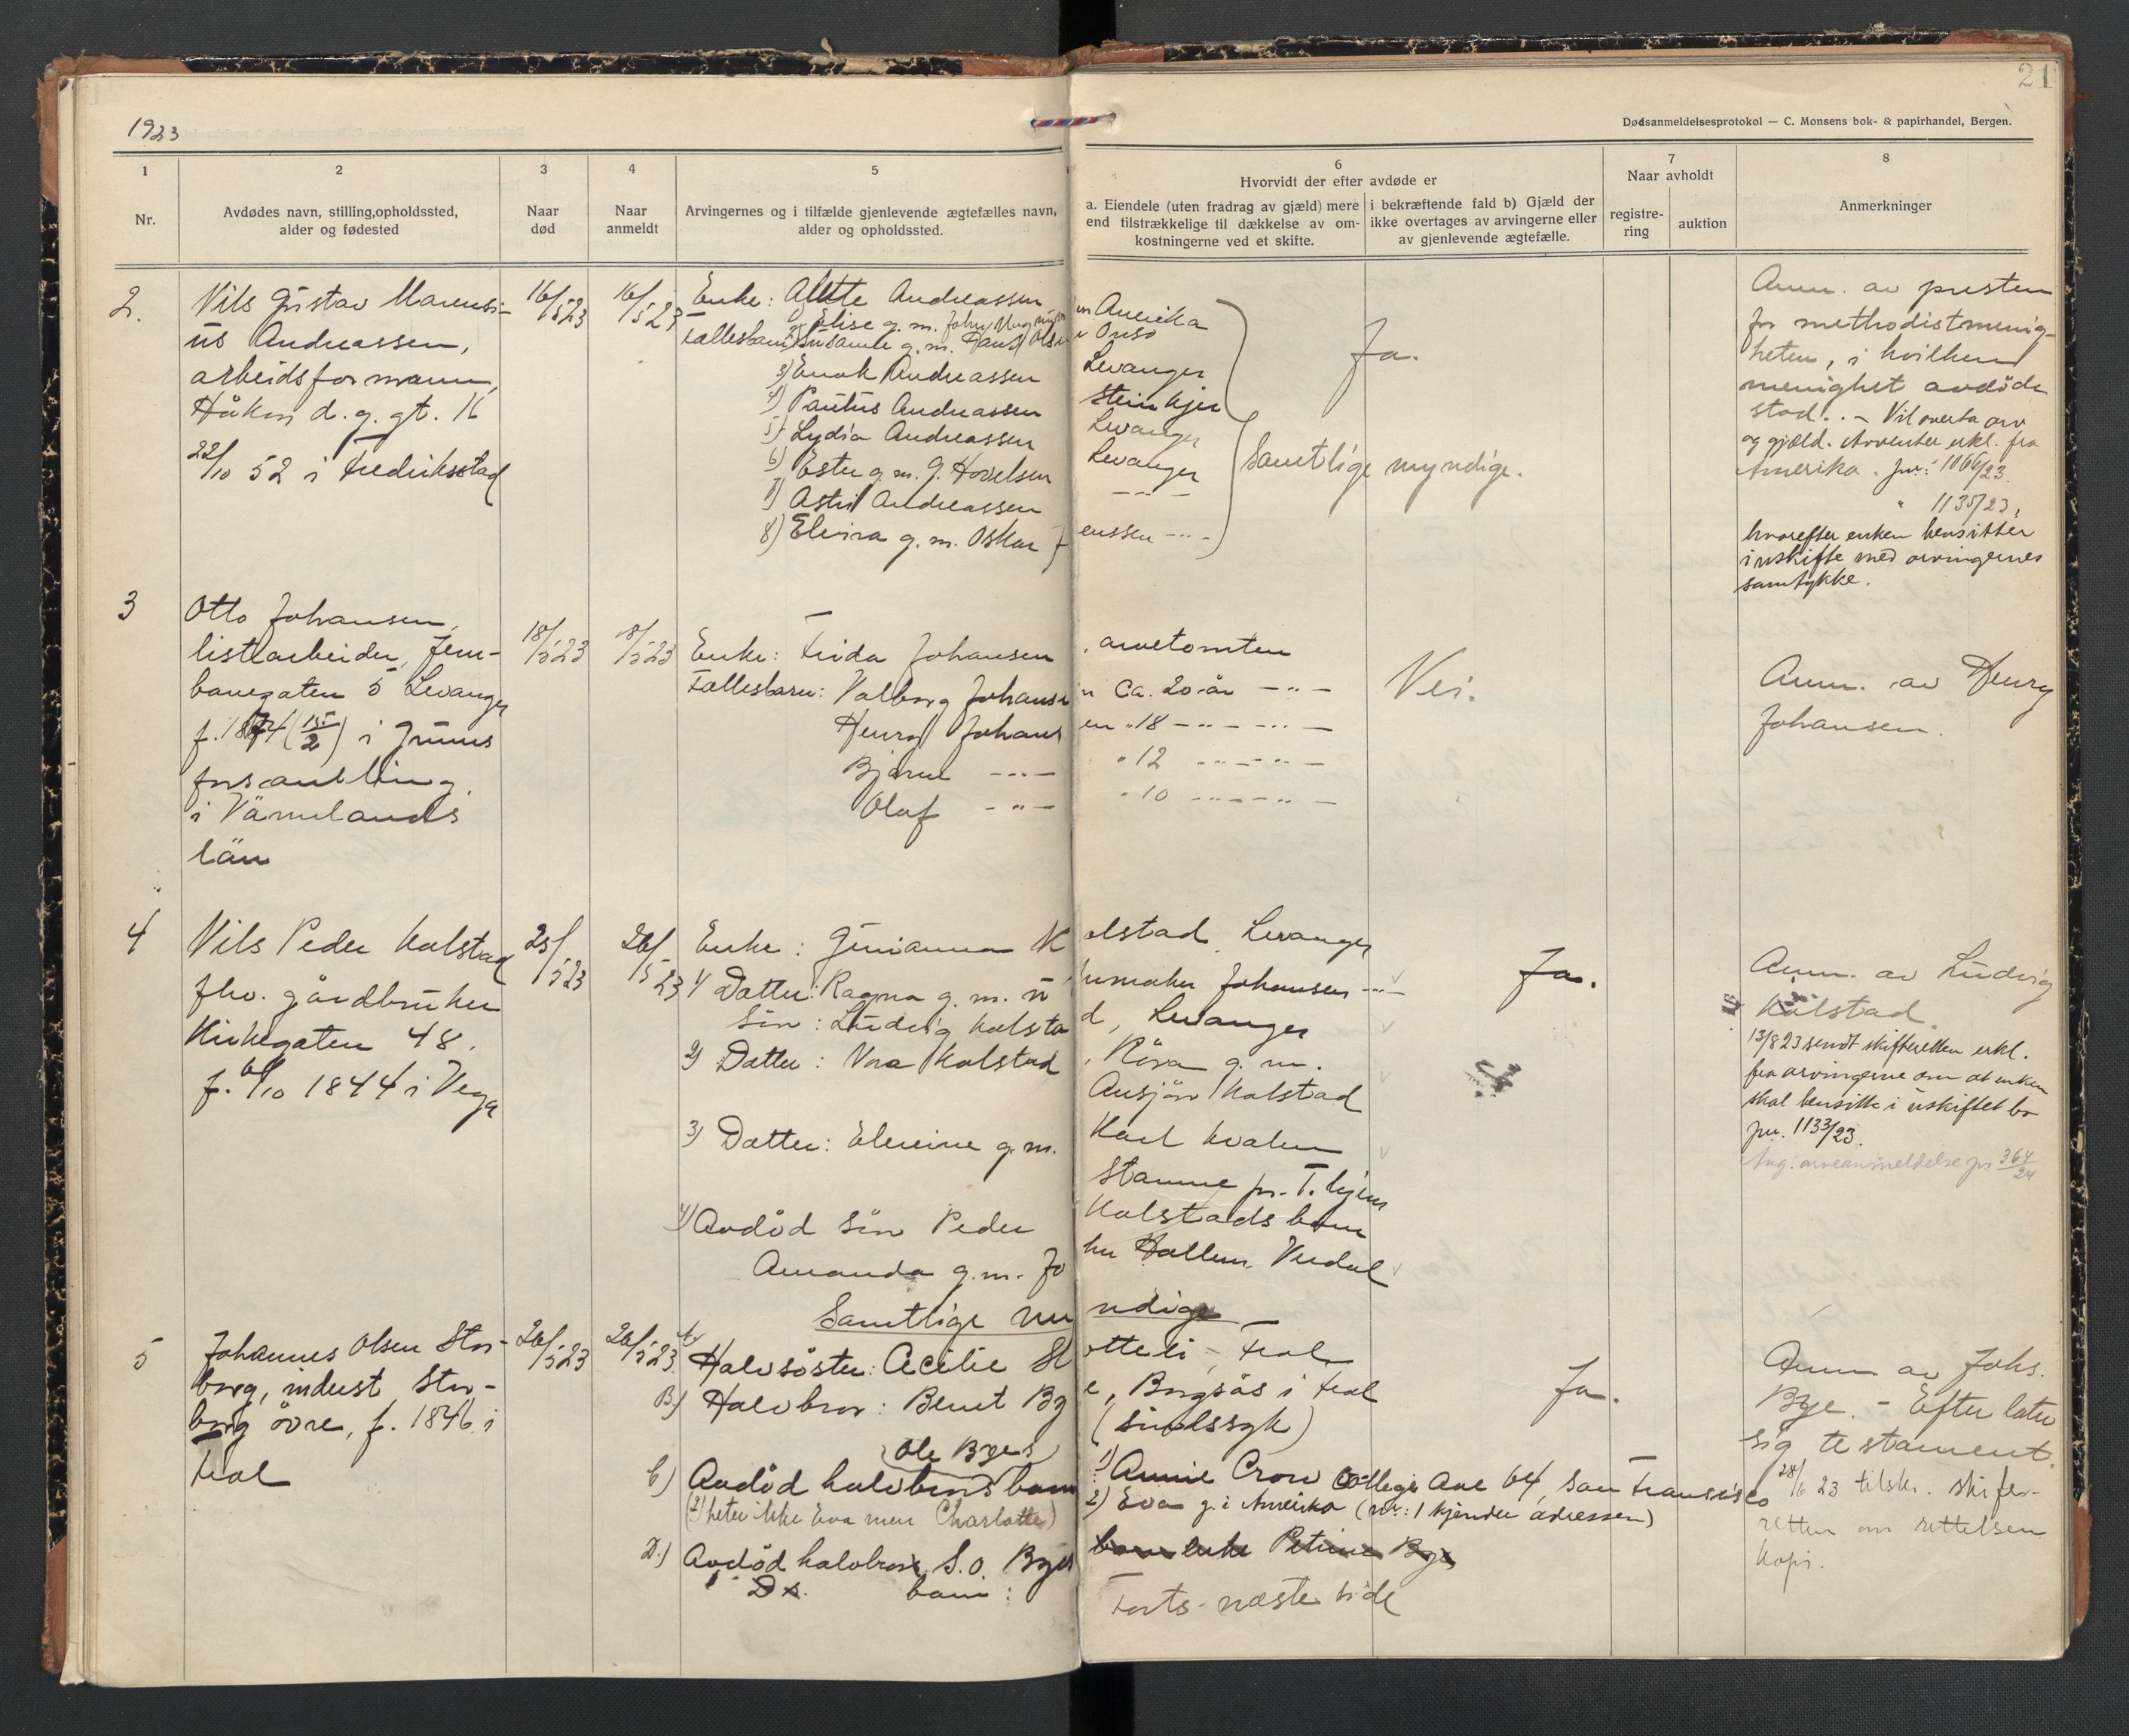 21
1923
Dødsanmeldelsesprotokol — C. Monsens bok- & papirhandel, Bergen.
1
Nr.
2
Avdødes navn, stilling, opholdssted,
alder og fødested
3
Naar
død
4
Naar
anmeldt
5
Arvingernes og i tilfælde gjenlevende ægtefælles navn,
alder og opholdssted.
6
Hvorvidt der efter avdøde er
a. Eiendele (uten fradrag av gjæld) mere
end tilstrækkelige til dækkelse av om-
kostningerne ved et skifte.
i bekræftende fald b) Gjæld der
ikke overtages av arvingerne eller
av gjenlevende ægtefælle.
7
Naar avholdt
registre-
ring
auktion
8
Anmerkninger
2.
Nils Gustav Marensi-
us Andreassen,
arbeidsformann,
Håkon d. g. gt. 16
22/10 52 i Fredriksstad
16/5 23
16/5 23
Enke: Alette Andreassen
Elise g. m. John Amerika
Fællesbarn: g. m. Hans Olsen Onsø
3) Enok Andreassen Levanger
4) Paulus Andreassen Steinkjer
5) Lydia Andreassen Levanger
6) Ester g. m. G. Hovelsen Levanger
7) Astrid Andreassen — " —
8) Elvira g. m. Oskar Jenssen — " —
Ja.
Samtlige myndige.
Anm. av presten
for methodistmenig-
heten, i hvilken
menighet avdöde
stod. . – Vil overta arv
og gjæld. Avventer erkl. fra
Amerika. Jnr: 1066/23.
" 1135/23,
hvorefter enken hensitter
i uskifte med arvingernes
samtykke.
3
Otto Johansen,
listearbeider, Jern-
banegaten 5 Levanger
f. 1874 (15/2) i Grums
forsamling
i Värmlands
län
18/5 23
18/5 23
Enke: Frida Johansen, arvetomten
Fællesbarn: Valborg Johansen ca. 20 år — " —
Henry Johansen " 18 — " — — " —
Bjarne — " — " 12 — " — — " —
Olaf — " — " 10 — " — — " —
Nei.
Anm. av Henry
Johansen.
4
Nils Peder Kolstad
fhv. gårdbruker
Kirkegaten 48.
f. 6/10 1844 i Vega
25/5 23
26/5 23
Enke: Kolstad, Levanger
1) Datter: Ragna g. m. urmaker Johansen — " —
Sön: Ludvig Kolstad, Levanger
2) Datter: Kolstad, Röra g. m.
Ausjön Kolstad
3) Datter: g. m. Karl Kvalen
Stamme pr. T. hjem
4) Avdöd sön Peder Kolstads barn
Amanda g. m. Johs Hallem, Verdal
Samtlige myndige
Ja.
Anm. av Ludvig
Kolstad.
13/8 23 sendt skifteretten erkl.
fra arvingerne om at enken
skal hensitte i uskiftet bo
jnr. 1133/23.
Ang. arveanmeldelse jnr 364/24
5
Johannes Olsen Stor-
borg, inderst Stor-
borg övre, f. 1846 i
Frol
26/5 23
26/5 23
A) Halvsöster: Cecilie Slotteli, Frol
B.) Halvbror: Bernt Bye, Borgsås i Frol
(sindssyk)
(Ole Byes)
C) Avdöd halvbrors barn 1) Annie Crow College Ave 64, San Fransisco
2) Eva g. i Amerika (nr: 1 kjender adressen)
(2) heter ikke Eva men Charlotte)
D.) Avdöd halvbror S. O. Byes barn enke Petrine Bye
Ds. barn:
Forts. næste side
Ja.
Anm av Johs.
Bye. – Efterlater
sig testament.
28/6 23 tilskr. skifte-
retten om rettelsen
Kopi.